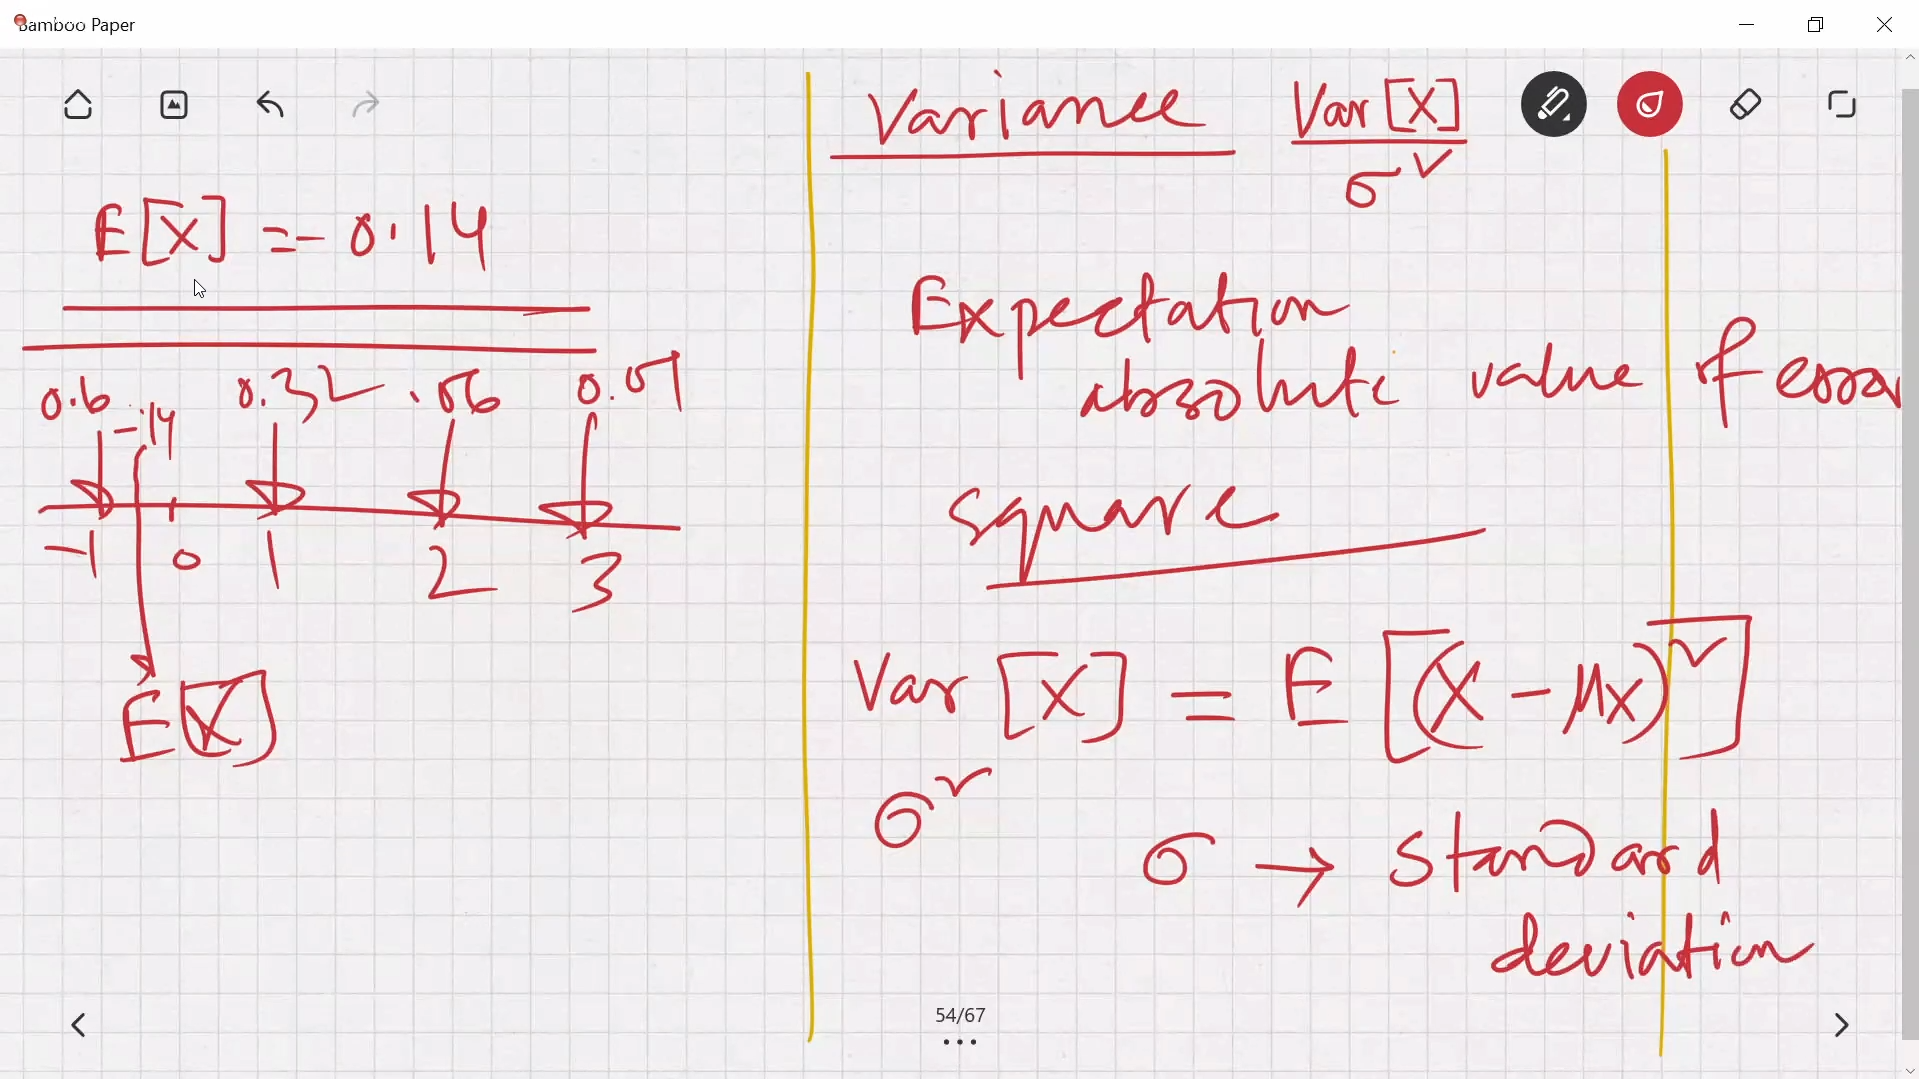 Bamboo Paper
E[X] = - 0.14
0.6 -.14 0.32 .06 0.01
-1 0 1 2 3
E[X]
Variance Var[X]
σ²
Expectation
absolute value of error
square
Var [X] = E [(X - μx)²]
σ²
σ → standard
deviation
54/67